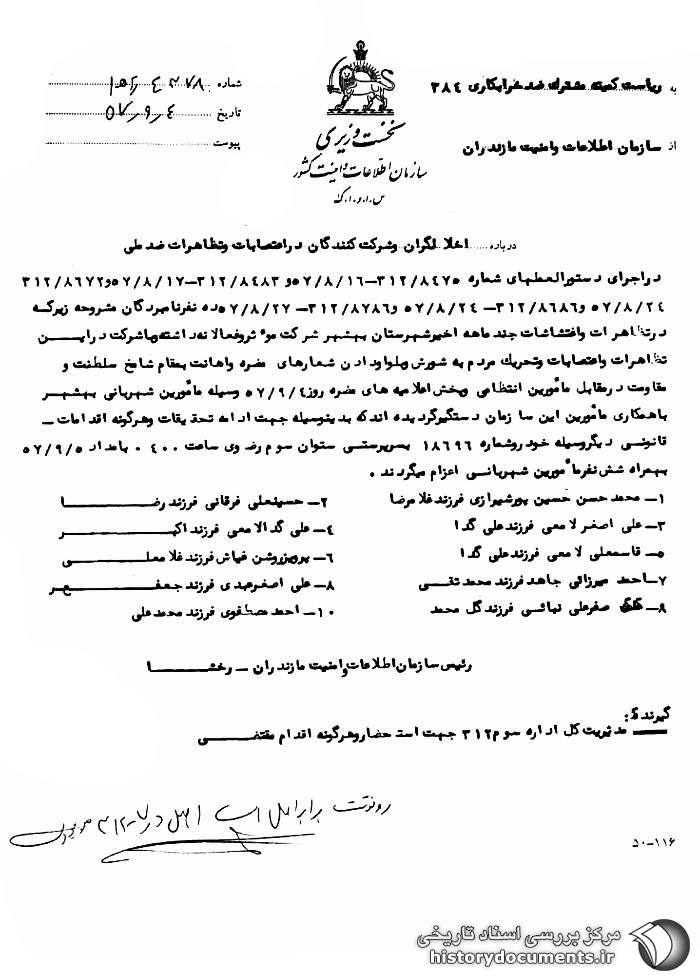 به ریاست کمیته مشترک ضد خرابکاری ۳۸۴
از سازمان اطلاعات وامنیت مازندران
نخست وزیری
سازمان اطلاعات و امنیت کشور
س.ا.و.ا.ک
شماره
تاریخ ۵۷٫۹٫۴
پیوست
درباره اخلالگران وشرکت کنندگان دراعتصابات وتظاهرات ضد ملی
دراجرای دستورالعملهای شماره ۳۱۲/۸۴۷۵–۵۷/۸/۱۶و ۳۱۲/۸۴۸۳–۵۷/۸/۱۷و۳۱۲/۸۶۷۲
۵۷/۸/۲۴ و۳۱۲/۸۶۸۶– ۵۷/۸/۲۴ و۳۱۲/۸۷۸۶– ۵۷/۸/۲۷ده نفرنامبردگان مشروحه زیرکه
درتظاهرات واغتشاشات چندماهه اخیرشهرستان بهشهر شرکت موثروفعالانه داشته وباشرکت دراین
تظاهرات واعتصابات وتحریک مردم به شورش وبلواودادن شعارهای مضره واهانت بمقام شامخ سلطنت و
مقاومت درمقابل مأمورین انتظامی وپخش اعلامیه های مضره روز۵۷/۹/۴ وسیله مأمورین شهربانی بهشهر
باهمکاری مأمورین این سازمان دستگیرگردیده اندکه بدینوسیله جهت ادامه تحقیقات وهرگونه اقدامات –
قانونی دیگروسیله خودروشماره ۱۸۶۹۶ بسرپرستی ستوان سوم رضوی ساعت ۰۴۰۰ بامداد ۵۷/۹/۵
بهمراه شش نفرمأمورین شهربانی اعزام میگردند .
۱– محمد حسن حسین پورشیرازی فرزند غلامرضا
۲– حسینعلی فرقانی فرزند رضا
۳– علی اصغر لامعی فرزند علی گدا
۴– علی گدالامعی فرزند اکبر
۵– قاسمعلی لامعی فرزند علی گدا
۶– پرویزروشن غیاث فرزند غلامعلی
۷– احمد میرزائی جاهد فرزند محمد تقی
۸– علی اصغرمهدی فرزند جعفر
۸– صفرعلی نیائی فرزند گل محمد
۱۰– احمد مصطفوی فرزند محمدعلی
رئیس سازمان اطلاعات وامنیت مازندران – رخشا
گیرنده :
مدیریت کل اداره سوم ۳۱۲ جهت استحضاروهرگونه اقدام مقتضی
رونوشت برابر اصل است اصل در
۵۰–۱۱۶
مرکز بررسی اسناد تاریخی
historydocuments.ir